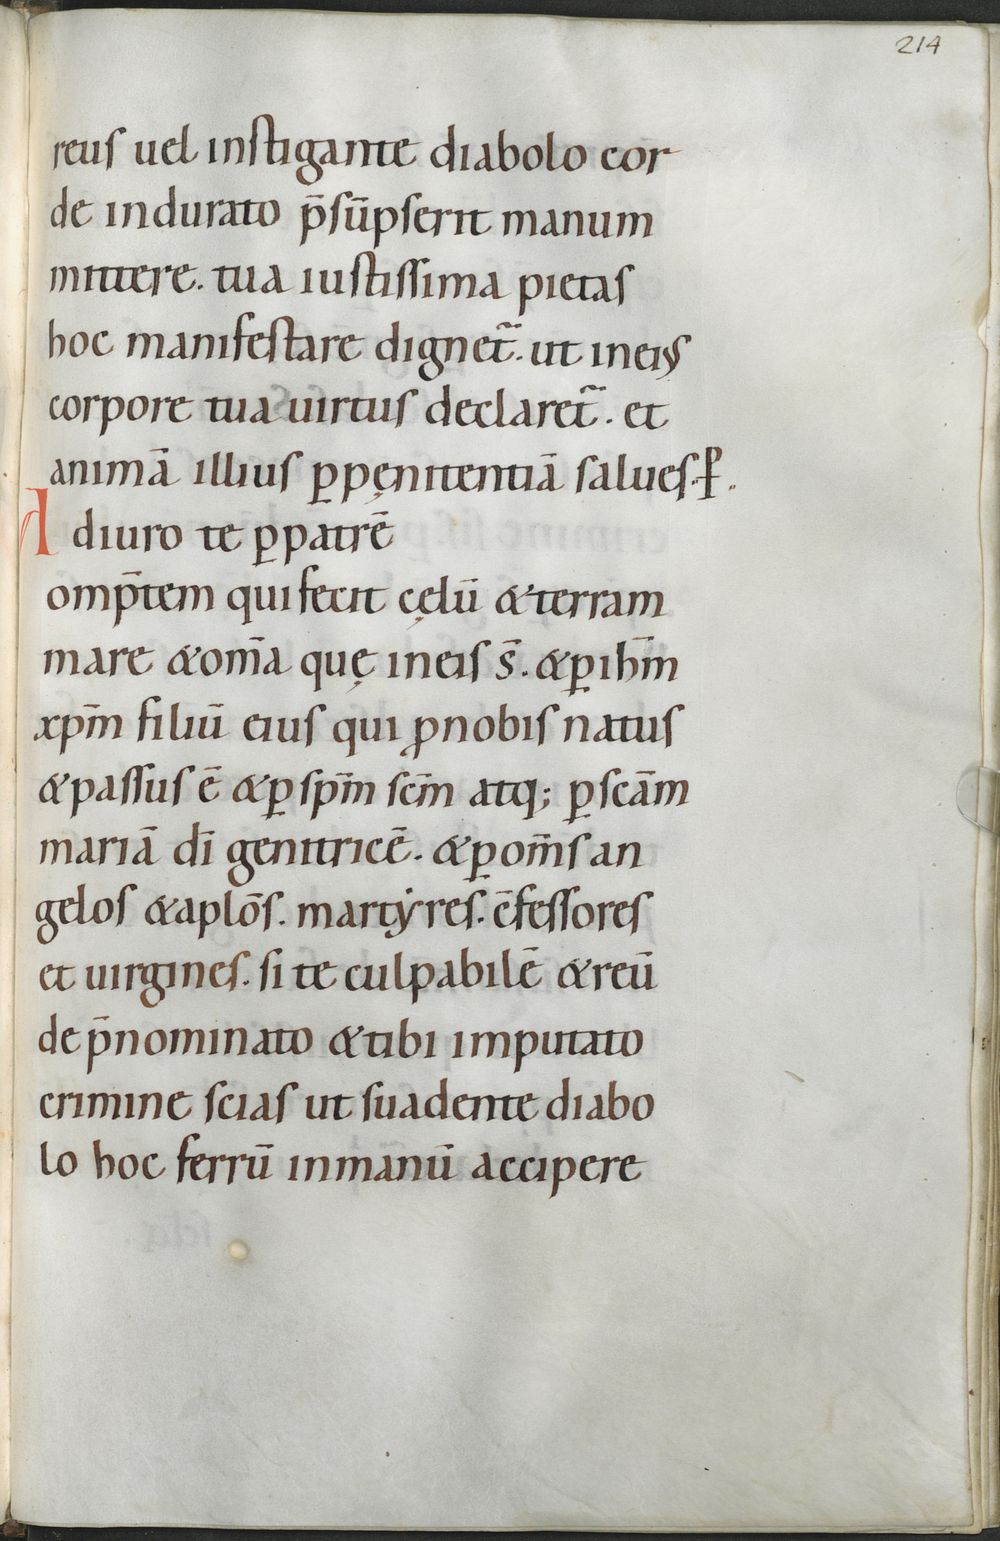 214
reus uel instigante diabolo cor
de indurato p̄sūpserit manum
mittere. tua iustissima pietas
hoc manifestare dignet̄. ut in eiꝰ
corpore tua uirtus declaret̄. et
animā illius ꝑ pęnitentiā salues. ꝑ.
Adiuro te ꝑ patrē
omp̄tem qui fecit cęlū & terram
mare & om̄a quę in eis s̄. & ꝑ ih̄m
xp̄m filiū eius qui ꝓ nobis natus
& passus ē & ꝑ sp̄m sc̄m atq; ꝑ scām
mariā dī genitricē. & ꝑ om̄s an
gelos & aplōs. martyres. c̄fessores
et uirgines. si te culpabilē & reū
de p̄nominato & tibi imputato
crimine scias ut suadente diabo
lo hoc ferrū in manū accipere